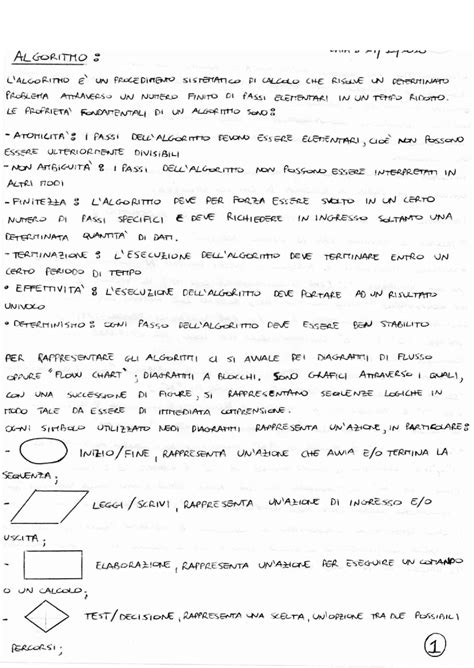 ALGORITMO:
L'ALGORITMO E' UN PROCEDIMENTO SISTEMATICO DI CALCOLO CHE RISOLVE UN DETERMINATO
PROBLEMA ATTRAVERSO UN NUMERO FINITO DI PASSI ELEMENTARI IN UN TEMPO RIDOTTO.
LE PROPRIETA' FONDAMENTALI DI UN ALGORITMO SONO:
- ATOMICITA': I PASSI DELL'ALGORITMO DEVONO ESSERE ELEMENTARI, CIOÈ NON POSSONO
ESSERE ULTERIORMENTE DIVISIBILI
- NON AMBIGUITA': I PASSI DELL'ALGORITMO NON POSSONO ESSERE INTERPRETATI IN
ALTRI MODI
- FINITEZZA: L'ALGORITMO DEVE PER FORZA ESSERE SVOLTO IN UN CERTO
NUMERO DI PASSI SPECIFICI E DEVE RICHIEDERE IN INGRESSO SOLTANTO UNA
DETERMINATA QUANTITA' DI DATI.
- TERMINAZIONE: L'ESECUZIONE DELL'ALGORITMO DEVE TERMINARE ENTRO UN
CERTO PERIODO DI TEMPO
• EFFETTIVITA': L'ESECUZIONE DELL'ALGORITMO DEVE PORTARE AD UN RISULTATO
UNIVOCO
• DETERMINISMO: OGNI PASSO DELL'ALGORITMO DEVE ESSERE BEN STABILITO
PER RAPPRESENTARE GLI ALGORITMI CI SI AVVALE DEI DIAGRAMMI DI FLUSSO
OPPURE "FLOW CHART"; DIAGRAMMI A BLOCCHI. SONO GRAFICI ATTRAVERSO I QUALI,
CON UNA SUCCESSIONE DI FIGURE, SI RAPPRESENTANO SEQUENZE LOGICHE IN
MODO TALE DA ESSERE DI IMMEDIATA COMPRENSIONE.
OGNI SIMBOLO UTILIZZATO NEI DIAGRAMMI RAPPRESENTA UN'AZIONE, IN PARTICOLARE:
- INIZIO/FINE, RAPPRESENTA UN'AZIONE CHE AVVIA E/O TERMINA LA
SEQUENZA;
- LEGGI/SCRIVI, RAPPRESENTA UN'AZIONE DI INGRESSO E/O
USCITA;
- ELABORAZIONE, RAPPRESENTA UN'AZIONE PER ESEGUIRE UN COMANDO
O UN CALCOLO;
- TEST/DECISIONE, RAPPRESENTA UNA SCELTA, UN'OPZIONE TRA DUE POSSIBILI
PERCORSI;
1